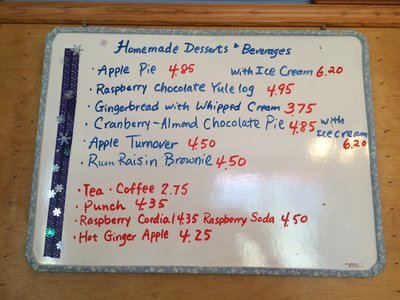 Homemade Desserts & Beverages
· Apple Pie 4.85 with Ice Cream 6.20
· Raspberry Chocolate Yule log 4.95
· Gingerbread with Whipped Cream 3.75
· Cranberry-Almond Chocolate Pie 4.85 with Ice cream 6.20
· Apple Turnover 4.50
· Rum Raisin Brownie 4.50
· Tea · Coffee 2.75
· Punch 4.35
· Raspberry Cordial 4.35 Raspberry Soda 4.50
· Hot Ginger Apple 4.25